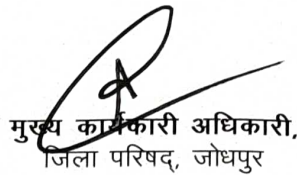 मुख्य कार्यकारी अधिकारी,
जिला परिषद्, जोधपुर